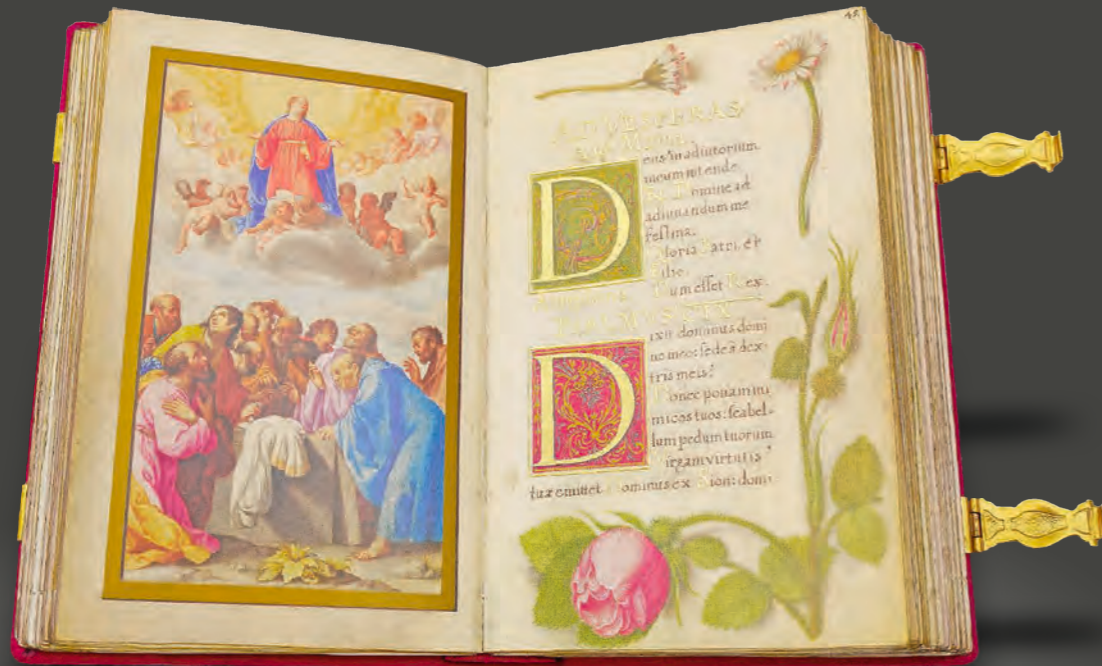 AD VESPERAS
Deus in adiutorium
meum intende.
R. Domine ad
adiuuandum me
festina.
Gloria Patri, et
Filio.
Cum esset Rex.
PSALMUS CIX
Dixit dominus domi
no meo: sede à dex-
tris meis.
Donec ponam ini
micos tuos: scabel-
lum pedum tuorum.
Virgam virtutis
tuæ emittet Dominus ex Sion: domi